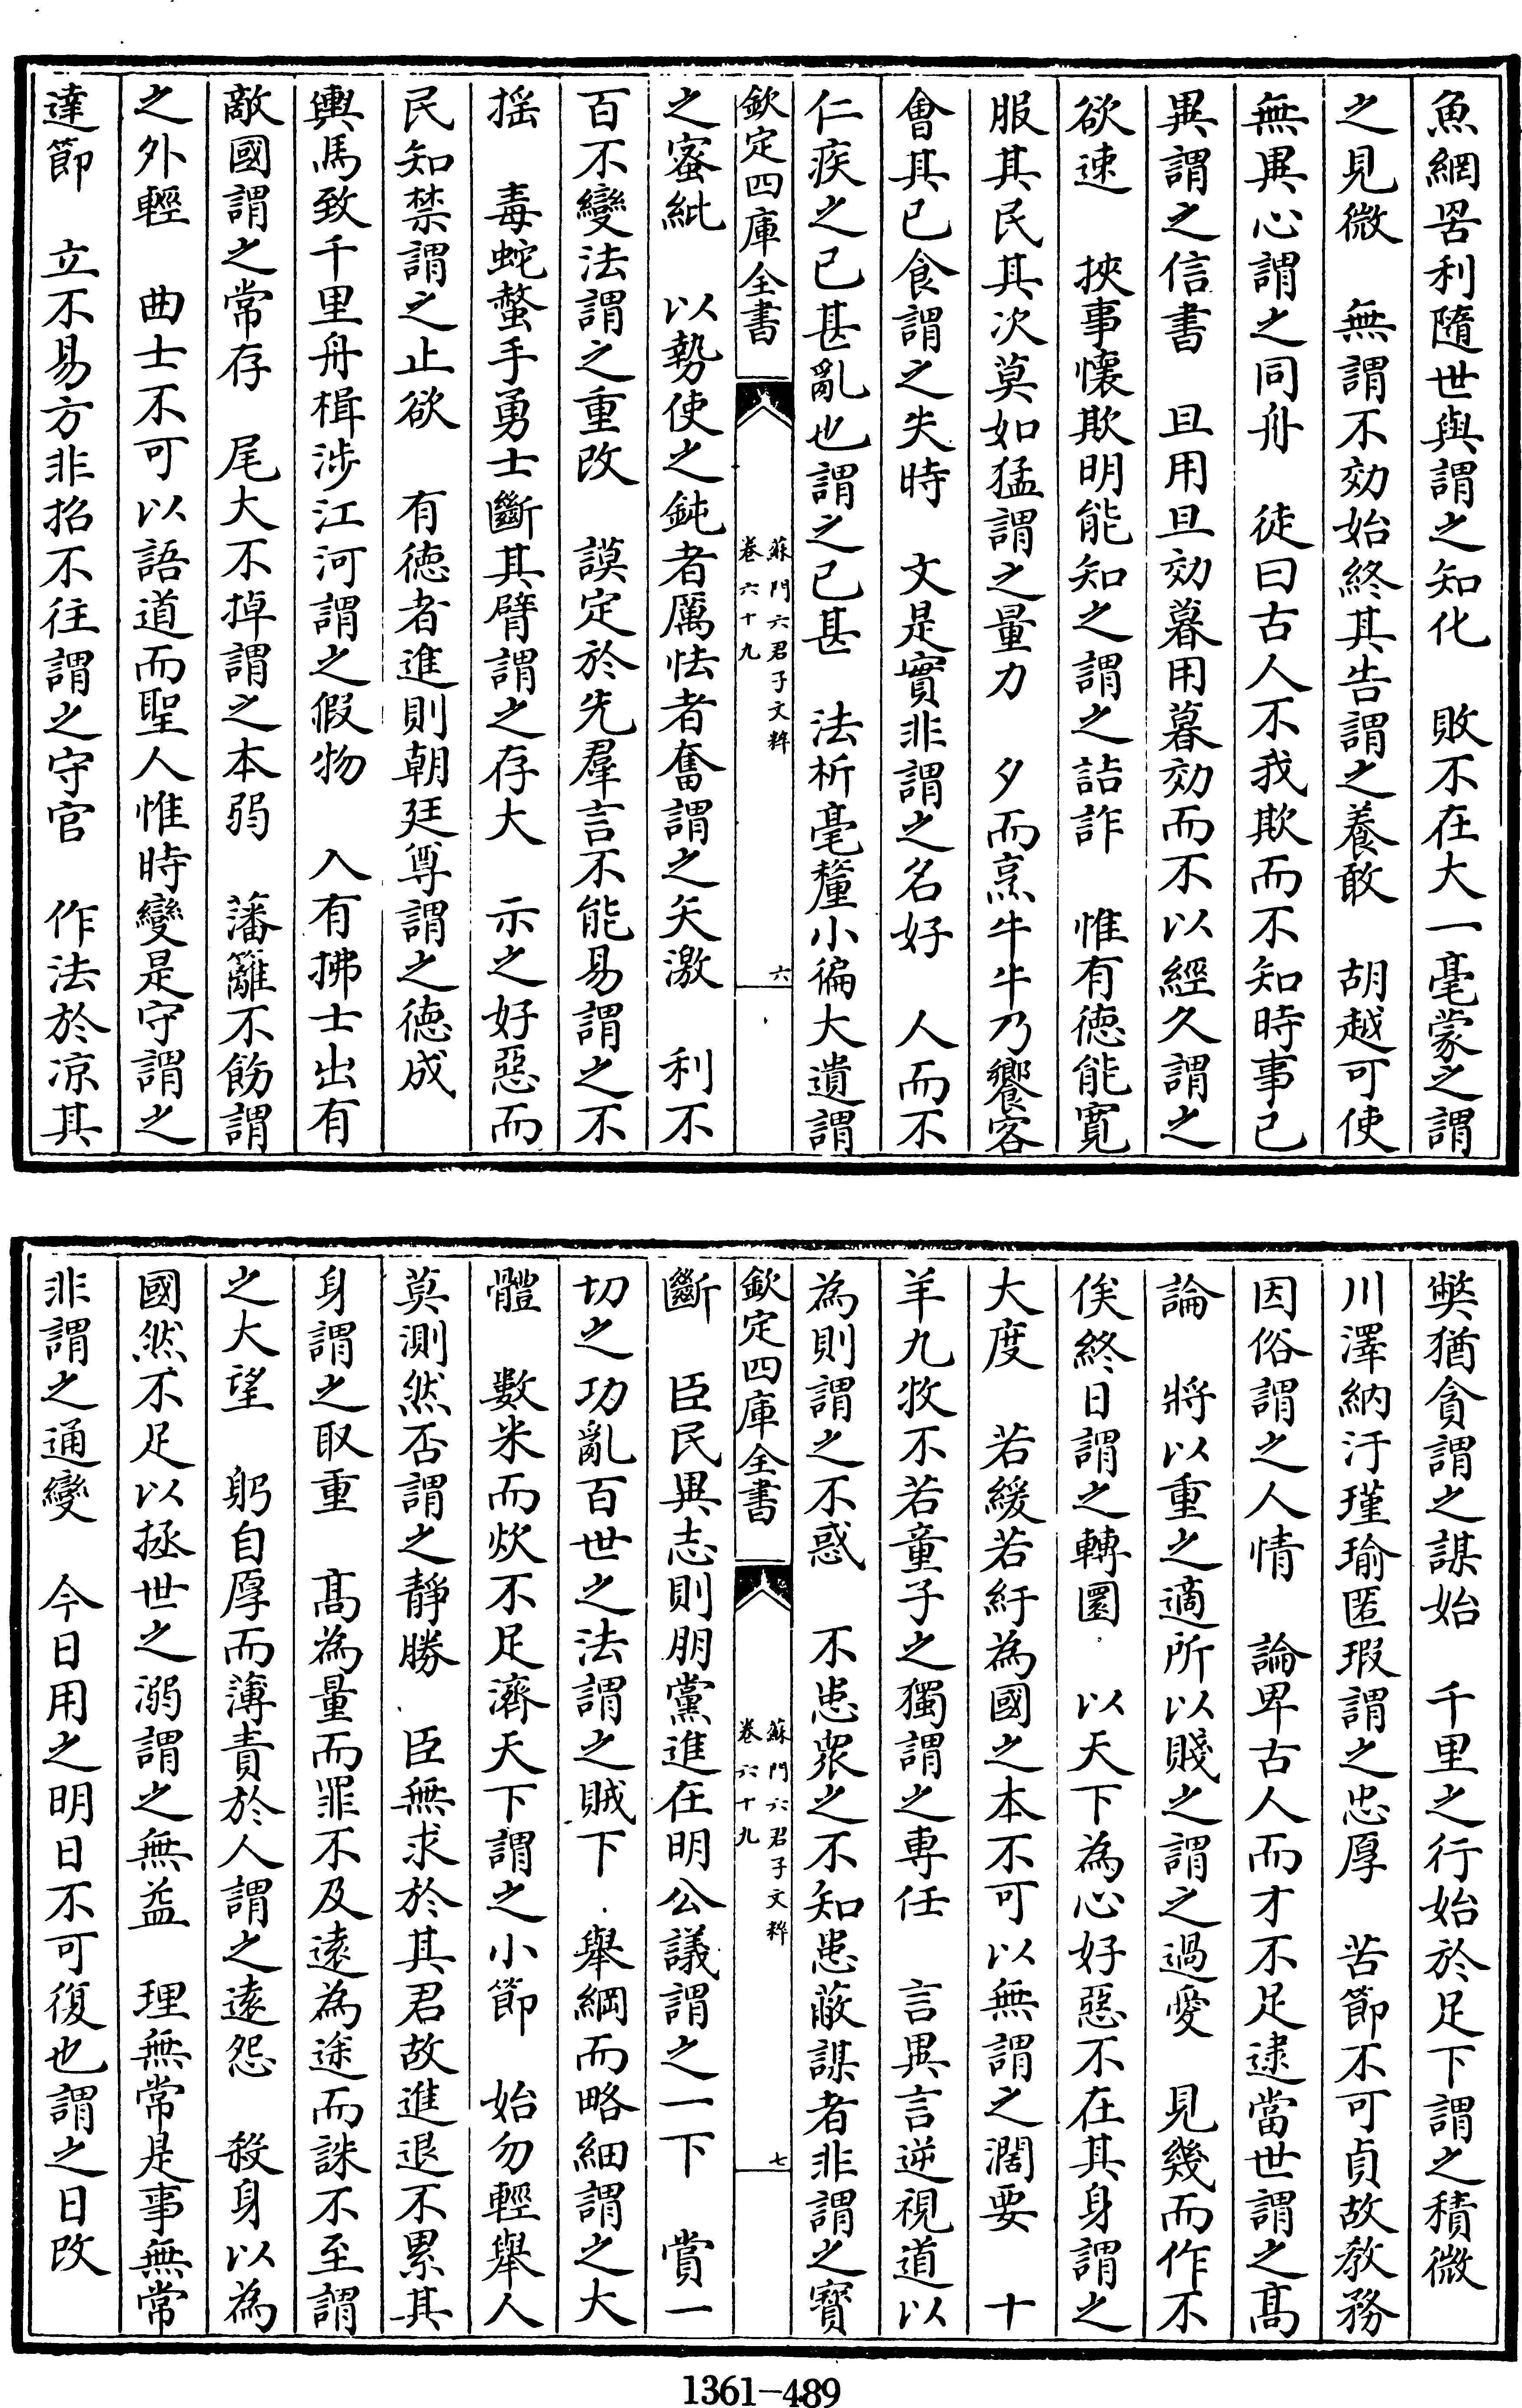 魚網罟利隨世與謂之知化　敗不在大一毫蒙之謂
之見微　無謂不効始終其告謂之養敢　胡越可使
無異心謂之同舟　徒曰古人不我欺而不知時事已
異謂之信書　旦用旦効暮用暮効而不以經久謂之
欲速　挾事懷欺明能知之謂之詰詐　惟有徳能寛
服其民其次莫如猛謂之量力　夕而烹牛牛乃饗客
會其已食謂之失時　文是實非謂之名好　人而不
仁疾之已甚亂也謂之已甚　法析毫釐小徧大遺謂
欽定四庫全書
蘇門六君子文粹
卷六十九
六
之蜜紕　以勢使之鈍者厲怯者奮謂之矢激　利不
百不變法謂之重改　謨定於先羣言不能易謂之不
揺　毒蛇螫手勇士斷其臂謂之存大　示之好惡而
民知禁謂之止欲　有徳者進則朝廷尊謂之徳成
輿馬致千里舟楫渉江河謂之假物　入有拂士出有
敵國謂之常存　尾大不掉謂之本弱　藩籬不飭謂
之外輕　曲士不可以語道而聖人惟時變是守謂之
達節　立不易方非招不往謂之守官　作法於凉其
弊猶貪謂之謀始　千里之行始於足下謂之積微
川澤納汙瑾瑜匿瑕謂之忠厚　苦節不可貞故教務
因俗謂之人情　論卑古人而才不足逮當世謂之髙
論　將以重之適所以賤之謂之過愛　見幾而作不
俟終日謂之轉圜　以天下為心好惡不在其身謂之
大度　若緩若紆為國之本不可以無謂之濶要　十
羊九牧不若童子之獨謂之専任　言異言逆視道以
為則謂之不惑　不患衆之不知患蔽謀者非謂之寳
欽定四庫全書
蘇門六君子文粹
卷六十九
七
斷　臣民異志則朋黨進在明公議謂之一下　賞一
切之功亂百世之法謂之賊下　舉綱而略細謂之大
體　數米而炊不足濟天下謂之小節　始勿輕舉人
莫測然否謂之靜勝　臣無求於其君故進退不累其
身謂之取重　髙為量而罪不及逺為途而誅不至謂
之大望　躬自厚而薄責於人謂之逺怨　殺身以為
國然不足以拯世之溺謂之無益　理無常是事無常
非謂之通變　今日用之明日不可復也謂之日改
1361-489